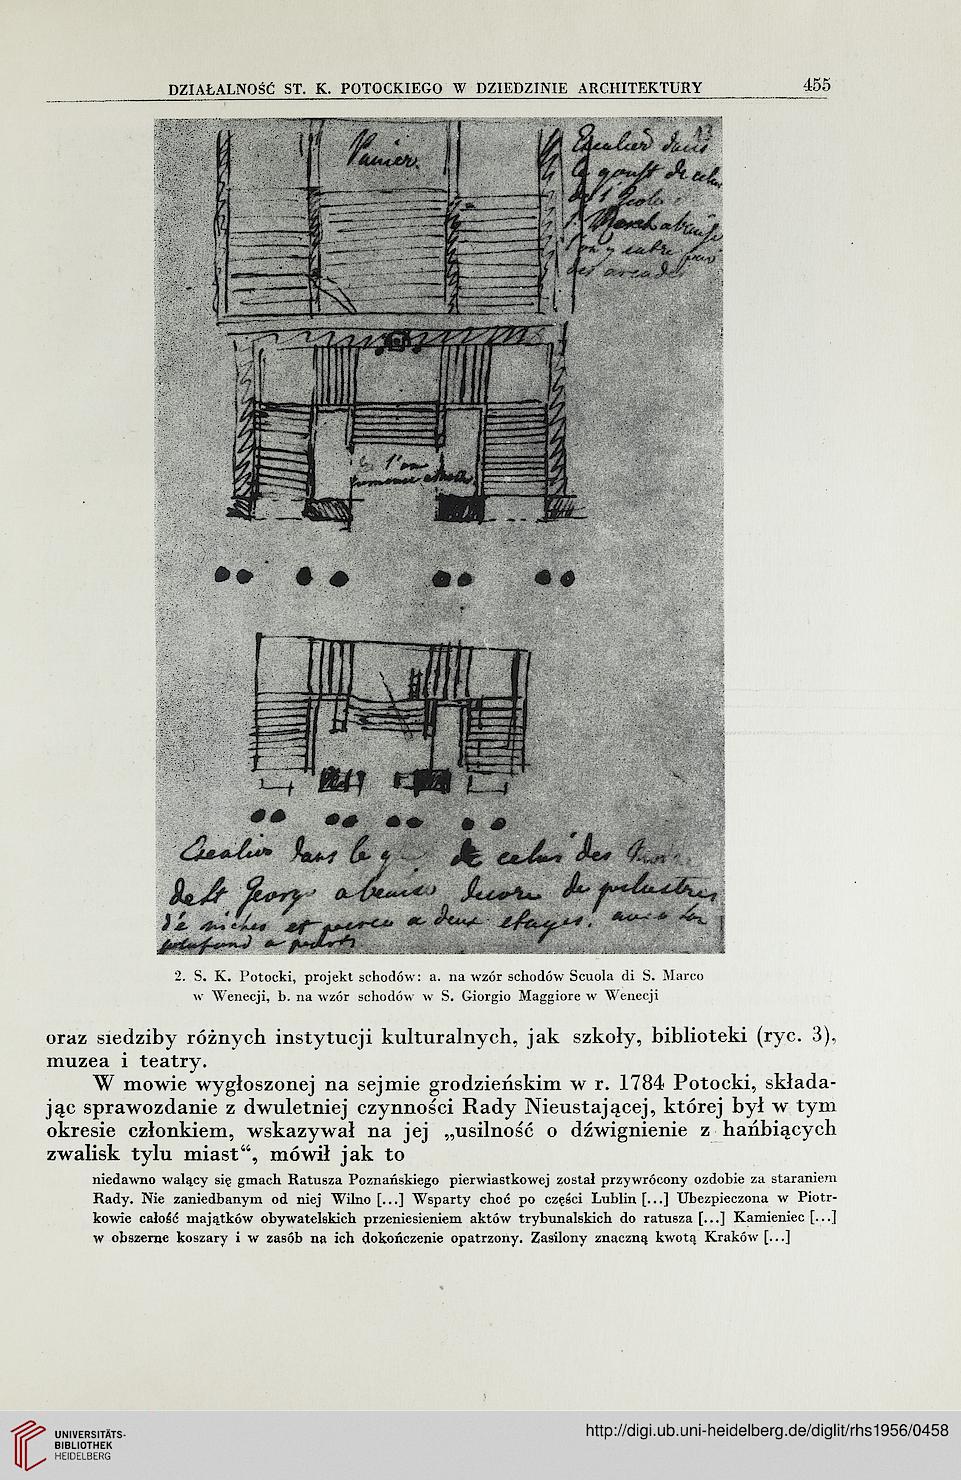 DZIAŁALNOŚĆ ST. K. POTOCKIEGO W DZIEDZINIE ARCHITEKTURY 455
Escalier dans
le goust de celui
de l'Ecole
l'on y entre par
des arcades
l'on
Escalier dans le de celui des
de St Georg a decoré de pilastres
de niches et percé a deux etages. avec
2. S. K. Potocki, projekt schodów: a. na wzór schodów Scuola di S. Marco
w Wenecji, b. na wzór schodów w S. Giorgio Maggiore w Wenecji
oraz siedziby różnych instytucji kulturalnych, jak szkoły, biblioteki (ryc. 3),
muzea i teatry.
W mowie wygłoszonej na sejmie grodzieńskim w r. 1784 Potocki, składa-
jąc sprawozdanie z dwuletniej czynności Rady Nieustającej, której był w tym
okresie członkiem, wskazywał na jej „usilność o dźwignienie z hańbiących
zwalisk tylu miast“, mówił jak to
niedawno walący się gmach Ratusza Poznańskiego pierwiastkowej został przywrócony ozdobie za staraniem
Rady. Nie zaniedbanym od niej Wilno [...] Wsparty choć po części Lublin [...] Ubezpieczona w Piotr-
kowie całość majątków obywatelskich przeniesieniem aktów trybunalskich do ratusza [...] Kamieniec [...]
w obszerne koszary i w zasób na ich dokończenie opatrzony. Zasilony znaczną kwotą Kraków [...]
UNIVERSITÄTS-
BIBLIOTHEK
HEIDELBERG
http://digi.ub.uni-heidelberg.de/diglit/rhs1956/0458